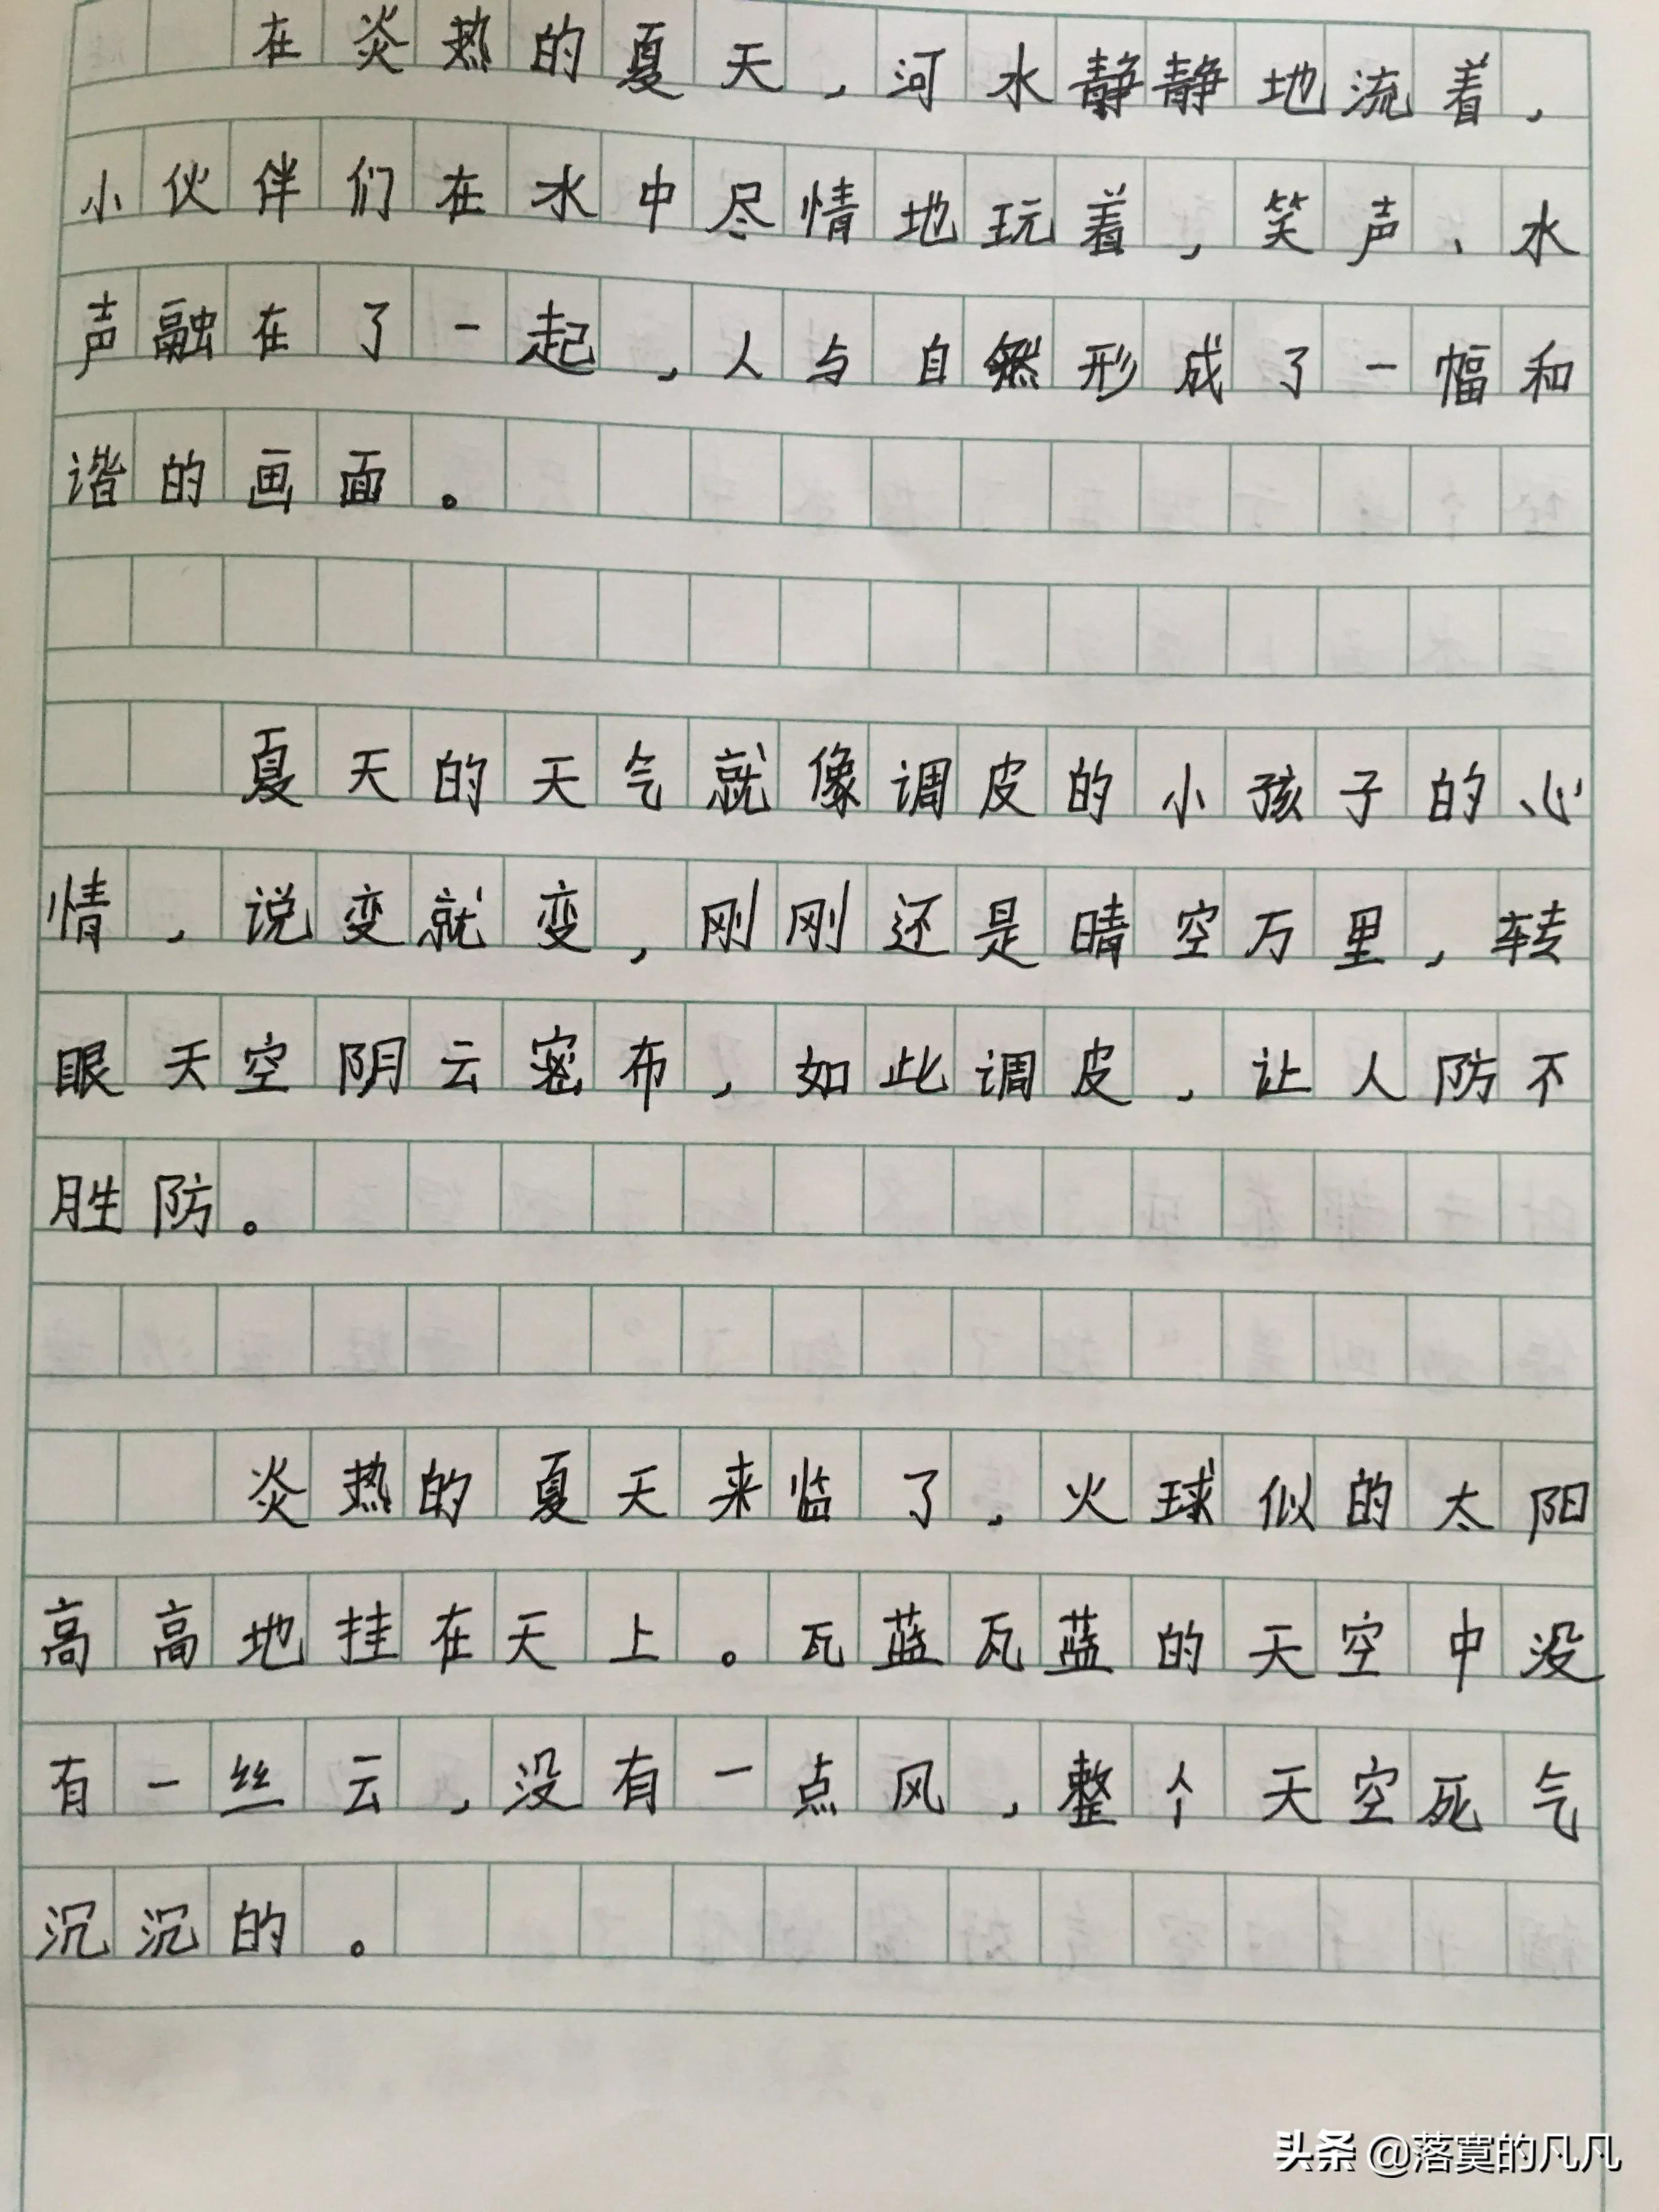 在炎热的夏天，河水静静地流着，
小伙伴们在水中尽情地玩着，笑声、水
声融在了一起，人与自然形成了一幅和
谐的画面。
夏天的天气就像调皮的小孩子的心
情，说变就变，刚刚还是晴空万里，转
眼天空阴云密布，如此调皮，让人防不
胜防。
炎热的夏天来临了，火球似的太阳
高高地挂在天上。瓦蓝瓦蓝的天空中没
有一丝云，没有一点风，整个天空死气
沉沉的。
头条 @落寞的凡凡